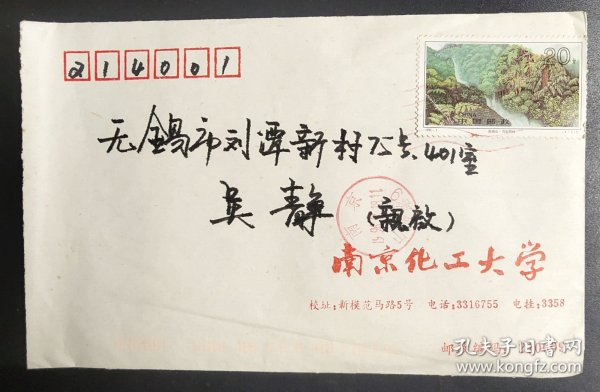 214001
20
中国邮政
无锡市刘潭新村75号401室
吴静(亲启)
南京
南京化工大学
校址:新模范马路5号 电话:3316755 电挂:3358
孔夫子旧书网
www.kongfz.com